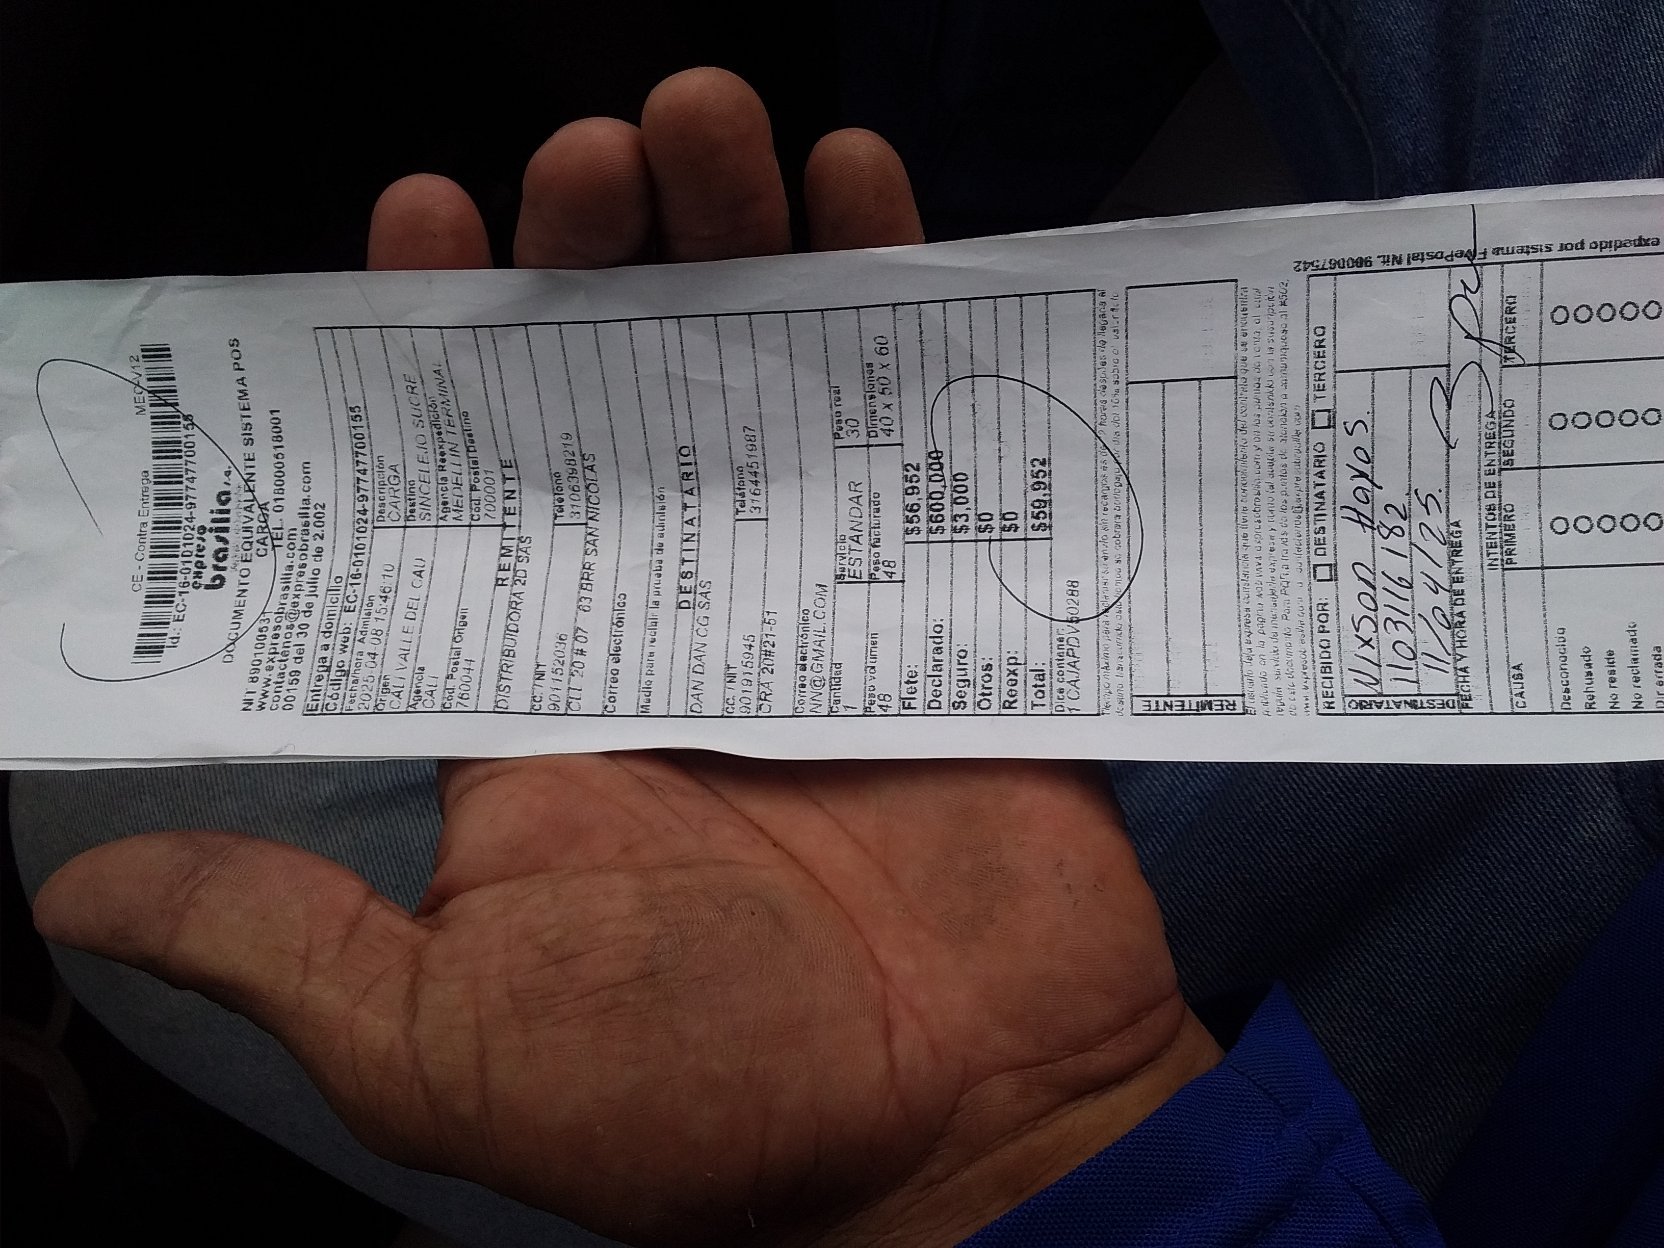 CE - Contra Entrega MEPAV12
Id.: EC-16-0101024-97747700155
expreso
brasilia s.a.
DOCUMENTO EQUIVALENTE SISTEMA POS
CARGA
NIT 890100531 TEL. 018000518001
www.expresobrasilia.com
contactenos@expresobrasilia.com
00199 del 30 de julio de 2.002
Entrega a domicilio
Código web: EC-16-0101024-97747700155
Fecha/hora Admisión
2025 04 08 15:46:10
Descripción
CARGA
Origen
CALI VALLE DEL CAU
Destino
SINCELEJO SUCRE
Agencia
CALI
Agencia Reexpedición
MEDELLIN TERMINAL
Cod. Postal Origen
760044
Cod. Postal Destino
700001
REMITENTE
DISTRIBUIDORA 2D SAS
CC. / NIT
901152036
Teléfono
3106398219
CLL 20 # 07 63 BRR SAN NICOLAS
Correo electrónico
Medio para recibir la prueba de admisión
DESTINATARIO
DAN DAN CG SAS
CC. / NIT
901915945
Teléfono
3164451987
CRA 20#21-51
Correo electrónico
NN@GMAIL.COM
Cantidad
1
Servicio
ESTANDAR
Peso real
30
Peso volumen
48
Peso facturado
48
Dimensiones
40 x 50 x 60
Flete: $56,952
Declarado: $600,000
Seguro: $3,000
Otros: $0
Reexp: $0
Total: $59,952
Dice contener:
1 CAJAPDV50288
REMITENTE
RECIBIDO POR: DESTINATARIO TERCERO
DESTINATARIO
Nixson Hoyos.
103116182
11/04/25.
FECHA Y HORA DE ENTREGA
INTENTOS DE ENTREGA
CAUSA PRIMERO SEGUNDO TERCERO
Desconocido
Rehusado
No reside
No reclamado
Dir errada
expedido por sistema FivePostal Nit. 900067542